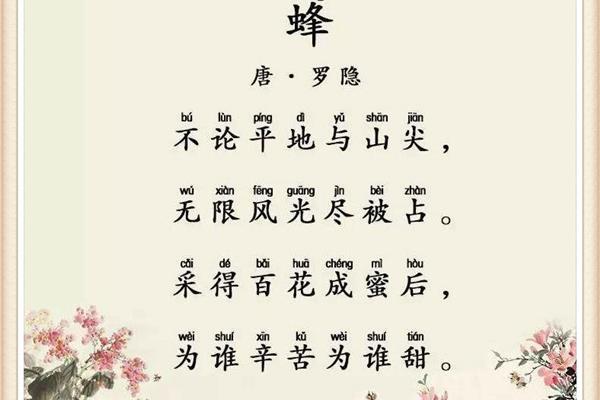 蜂
唐·罗隐
bú lùn píng dì yǔ shān jiān
不论平地与山尖，
wú xiàn fēng guāng jìn bèi zhàn
无限风光尽被占。
cǎi dé bǎi huā chéng mì hòu
采得百花成蜜后，
wèi shuí xīn kǔ wèi shuí tián
为谁辛苦为谁甜。